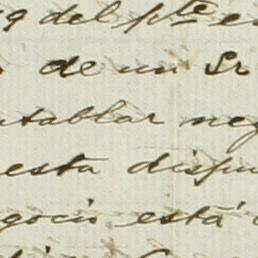 9 del pte e
de un Sr
ntablar neg
esta dispu
gocio está